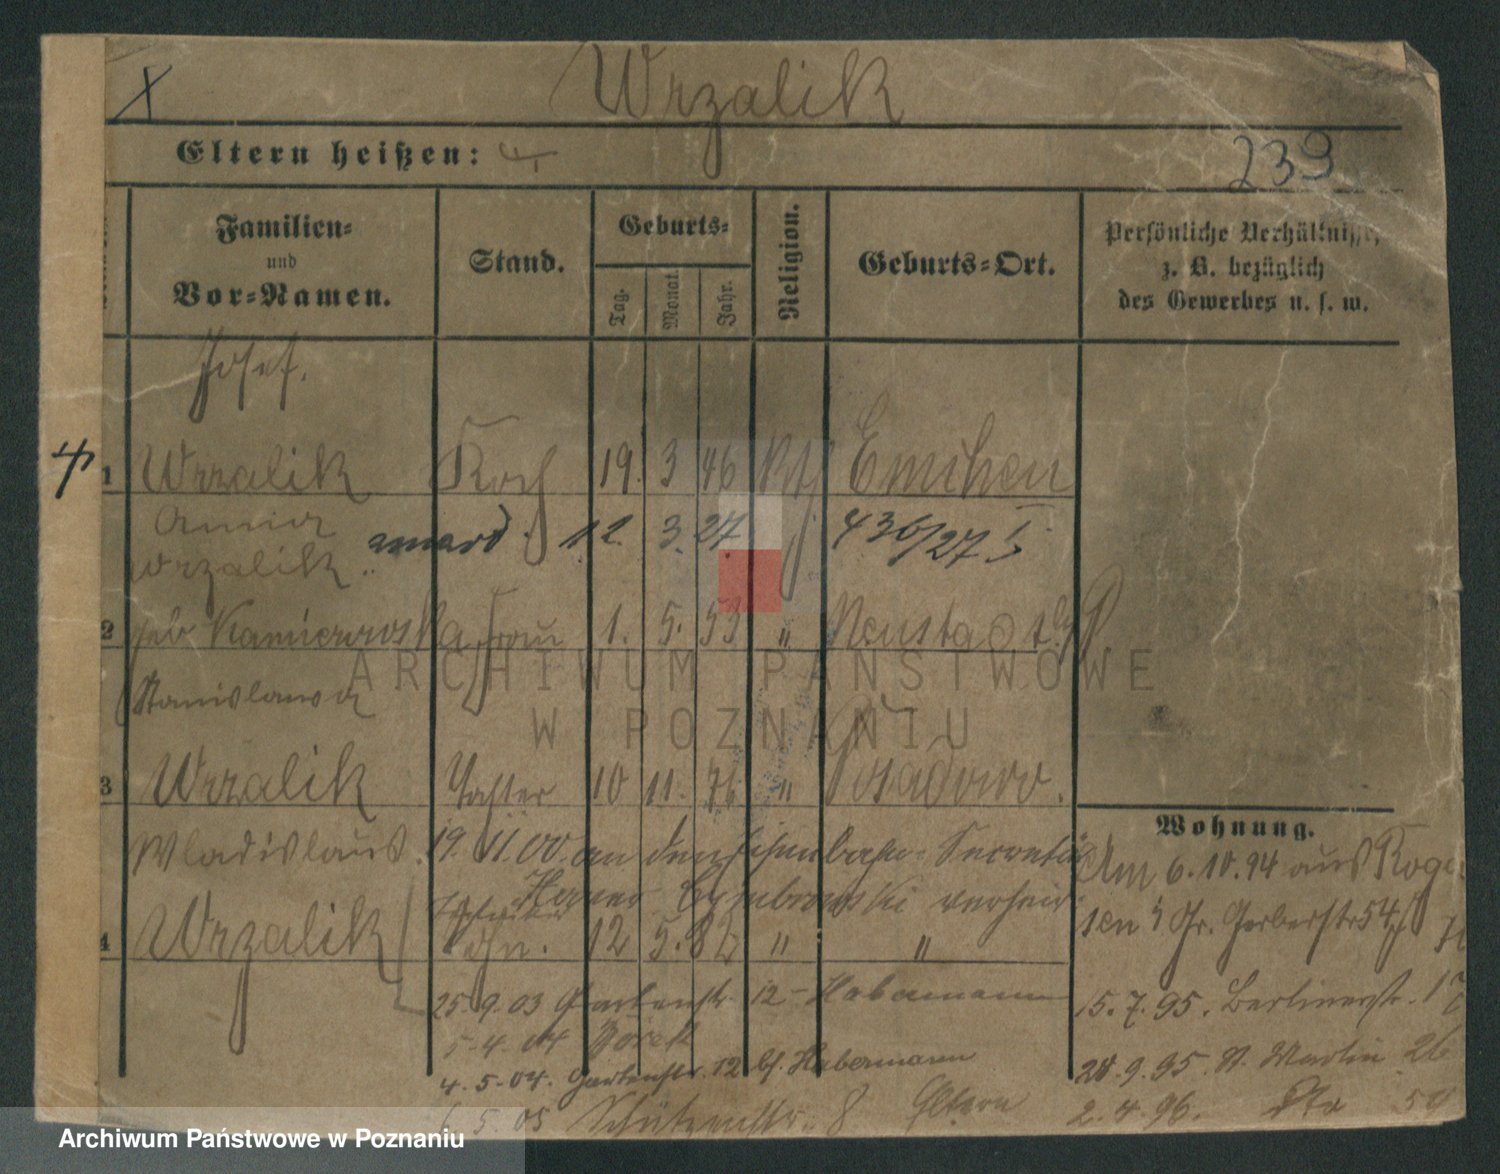 X
Wrzalik
Eltern heißen:
239
Familien-
und
Vor-Namen.
Stand.
Geburts-
Tag.
Monat.
Jahr.
Religion.
Geburts-Ort.
Persönliche Verhältnisse,
z. B. bezüglich
des Gewerbes u. s. w.
Josef.
1 Wrzalik Koch 19. 3 46 kth Emchen
Anna
12. 3. 27. 436/27
wrzalik
2 geb Kamierowska Frau 1. 5. 53 " Neustadt
Stanislawa
3 Wrzalik Tochter 10 11. 76 " Posadowo.
Wohnung.
Wladislaus. 19. 11. 00 an den Eisenbahn-Secretär
Am 6.10.94 aus
verheir.
Gr. Gerberstr 54
4 Wrzalik Sohn. 12 5. 82 " "
25.9.03 Gartenstr. 12 - Habermann
15.7.95. Berlinerstr.
5.4.04 Borek
4.5.04. Gartenstr. 12 bf. Habermann
28.9.95. St. Martin 26
5.05 Schützenstr 8 Eltern
2.4.96. Dto
ARCHIWUM PAŃSTWOWE
W POZNANIU
Archiwum Państwowe w Poznaniu